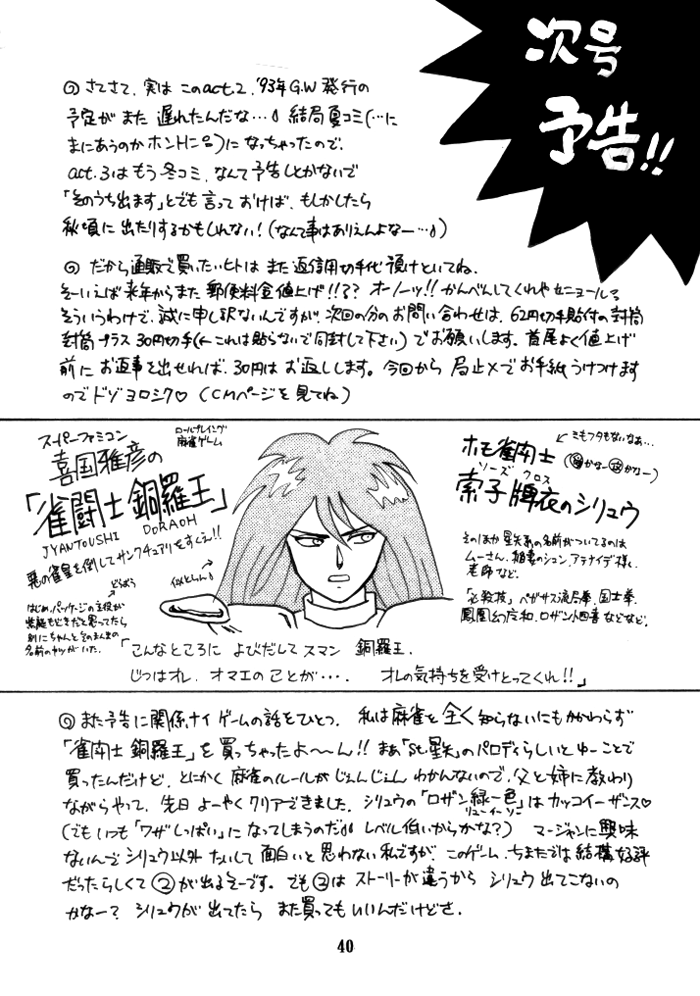 次号
予告!!
さてさて、実は このact.2、'93年G.W発行の
予定が また 遅れたんだな…。結局夏コミ(…に
まにあうのか ホントに)に なっちゃったので、
act.3はもう冬コミ、なんて予告しとかないで
「そのうち出ます」とでも言って おけば、もしかしたら
秋頃に 出たりするかもしれない!(なんて事はありえんよなー…)
だから通販で買いたいヒトは また返信用切手代 預けといてね。
そーいえば来年からまた 郵便料金値上げ!!?? オーノーッ!! かんべんしてくれや セニョール
そういうわけで、誠に申し訳ないんですが、次回の分のお問い合わせは、62円切手貼付の封筒
封筒プラス 30円切手(← これは貼らないで同封して下さい)でお願いします。首尾よく値上げ
前に お返事を出せれば、30円は お返しします。今回から 局止メでお手紙うけつけます
のでドゾヨロシク♡ (CMページを見てね)
スーパーファミコン
ロールプレイング
麻雀ゲーム
喜国雅彦の
「雀闘士 銅羅王」
JYANTOUSHI DORAOH
悪の雀皇を倒してサンクチュアリをすくえ!!
どらおう
はじめ、パッケージの主役が
紫龍もどきだと思ってたら
別にちゃんとそのまんまの
名前のヤツがいた。
似とらん
ホモ雀闘士
←ミもフタもないなぁ…
ソーズ クロス
索子牌衣のシリュウ
そのほか 星矢系の名前がついてるのは
ムーさん、 のシュン、アテナイデ様、
老師 など。
「必殺技」ペガサス流局拳、国士拳
鳳凰幻 和、ロザン小四喜などなど。
「こんなところに よびだして スマン 銅羅王、
じつはオレ、オマエの ことが…、 オレの気持ちを受けとってくれ!!」
また予告に関係ナイ ゲームの話をひとつ、私は麻雀を全く知らないにもかかわらず
「雀闘士 銅羅王」を買っちゃったよ〜ん!! まぁ「St.星矢」のパロディらしいと ゆーことで
買ったんだけど、とにかく 麻雀のルールがじぇんじぇん わかんないので、父と姉に教わり
ながらやって、先日 よーやく クリアできました。シリュウの「ロザン緑一色」はカッコイーザンス♡
リューイーソー
(でも いつも「ワザ しっぱい」に なってしまうのだ レベル低いからかな?) マージャンに興味
ないんで シリュウ以外 たいして 面白いと 思わない私ですが、このゲーム、ちまたでは結構好評
だったらしくて②が出るそーです。でも②は ストーリーが違うから シリュウ出てこないの
かなー? シリュウが 出てたら また買っても いいんだけどさ。
40